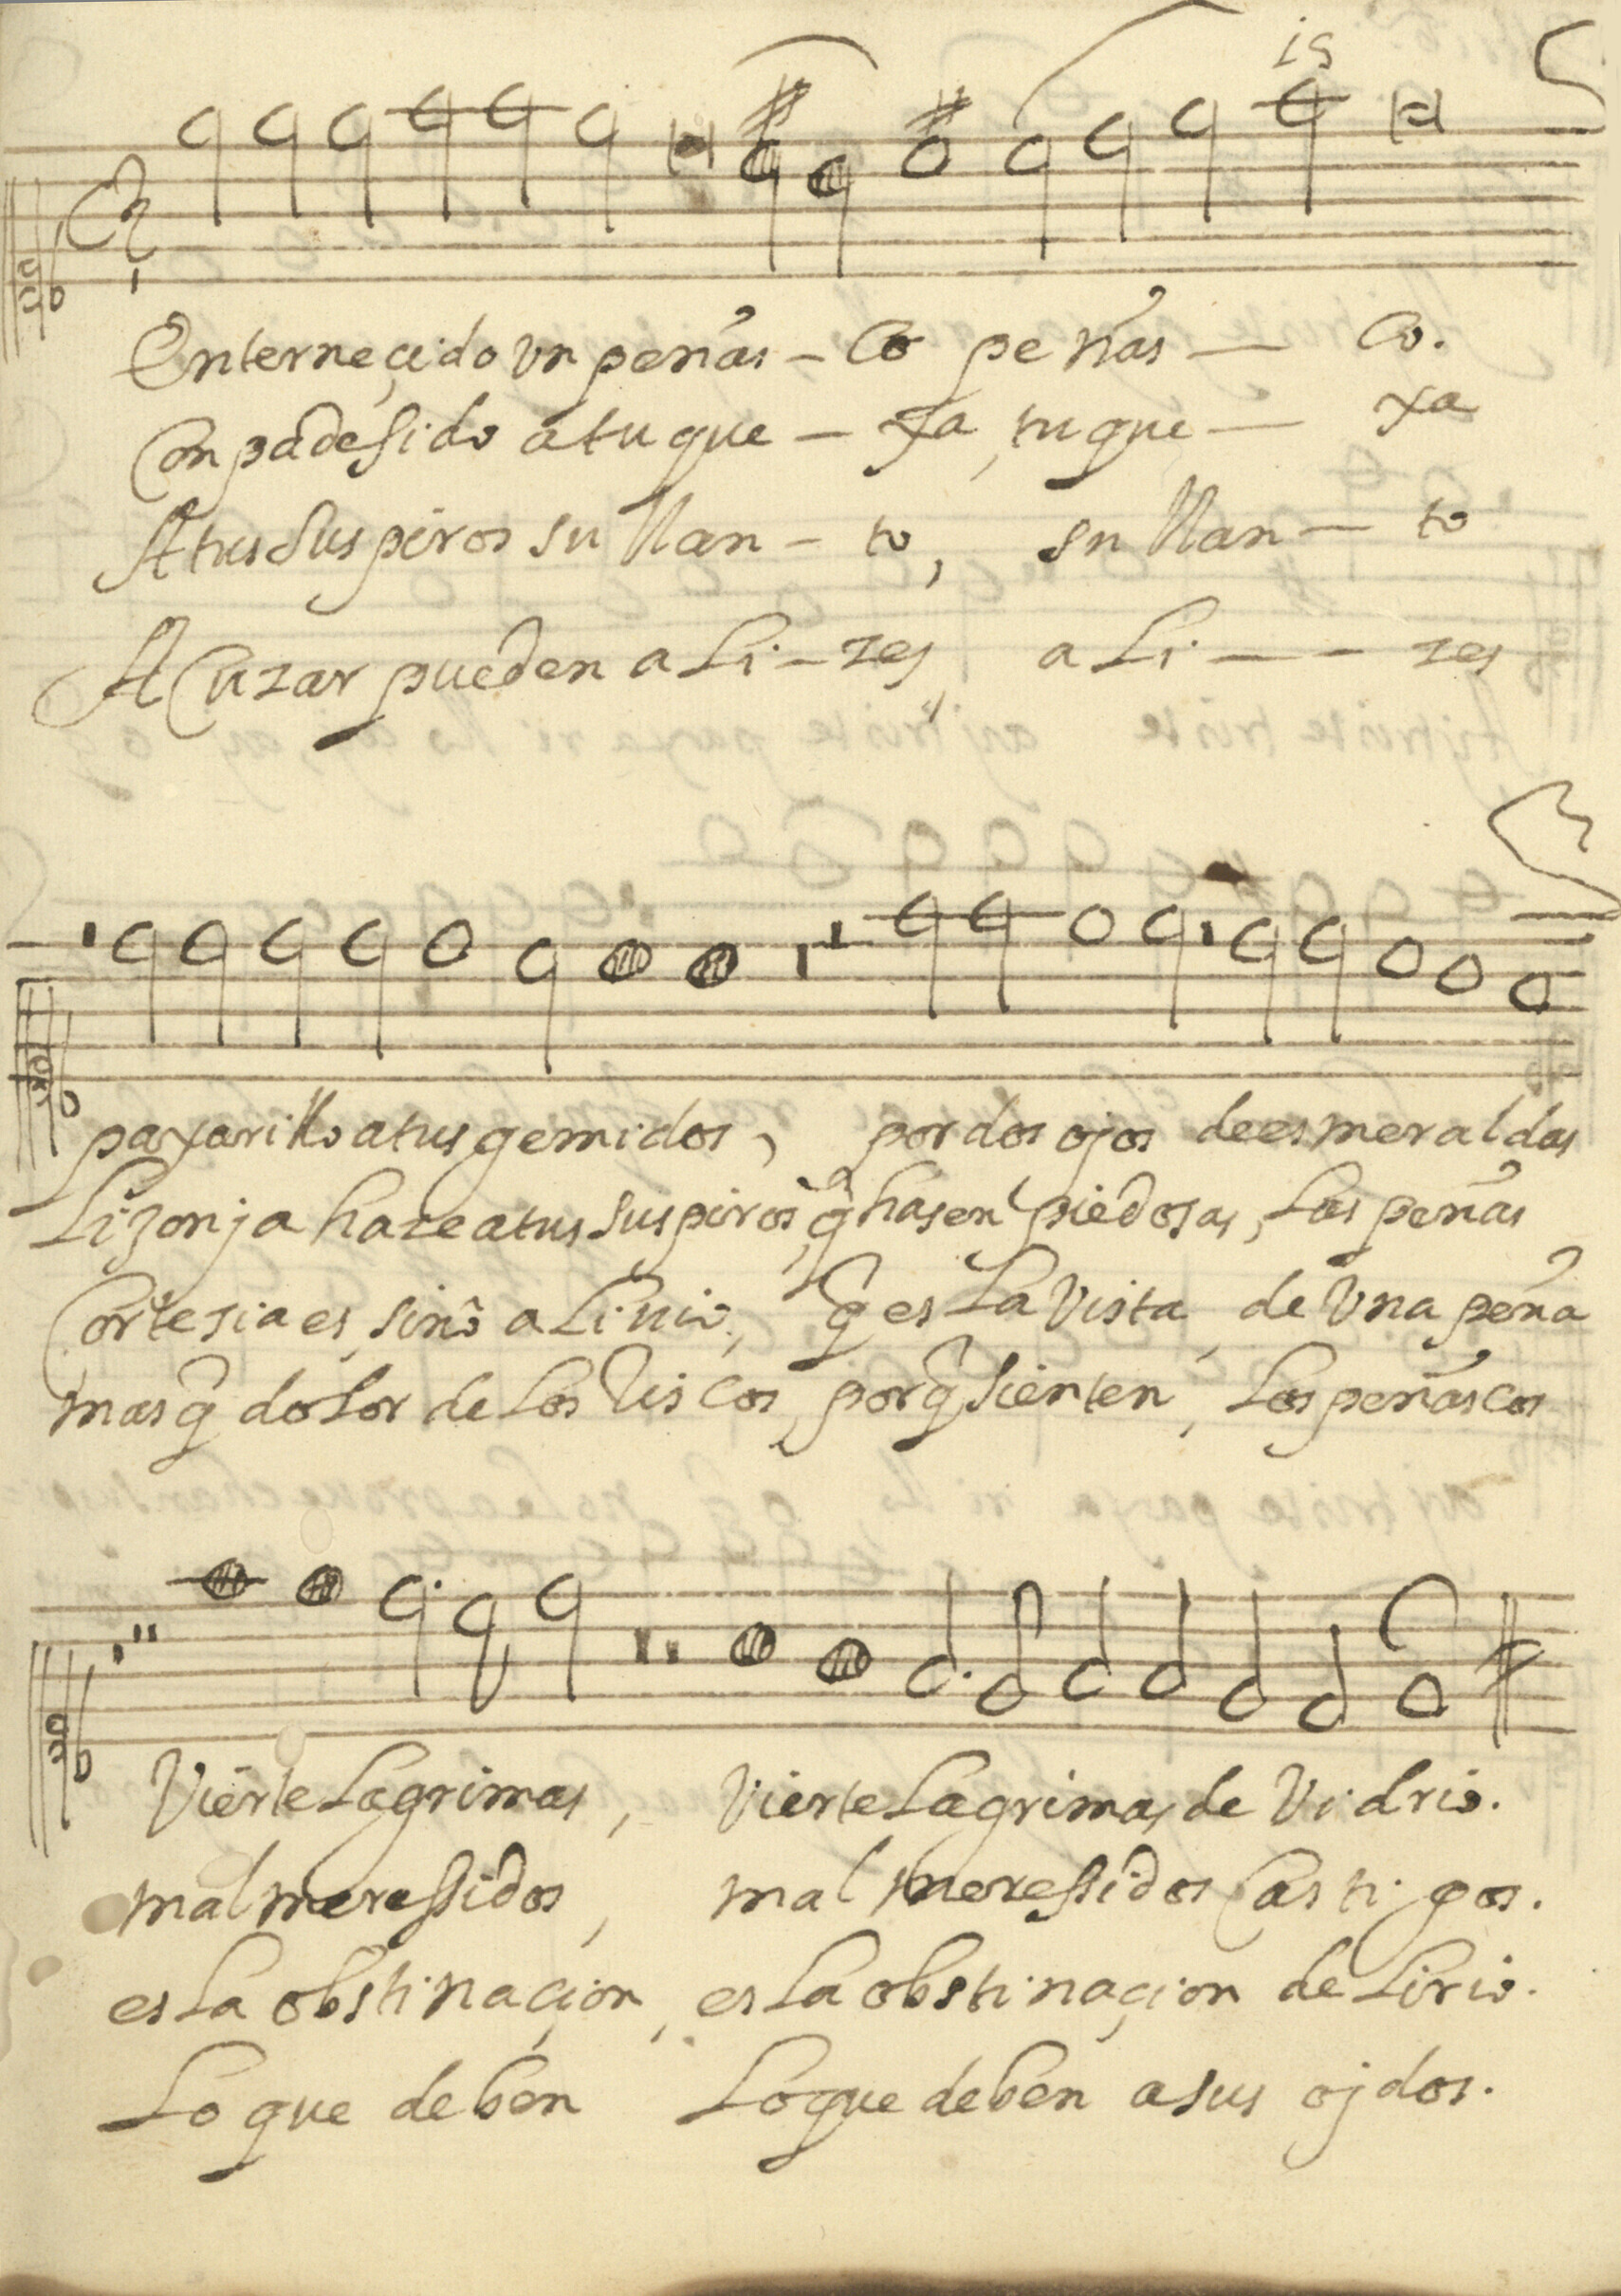 is
Enterneçido vn peñas - Co peñas — Co.
Conpadesido a tu que - xa, tu que — xa
A tus Suspiros su llan - to, su llan — to
ACuzar pueden a Li - zes, a Li — - zes
paxarillo a tus gemidos, por dos ojos de esmeraldas
Lizonja haze a tus suspiros, q̃ hasen piedosas, Las peñas
Cortesia es, sino a Livio, q̃ es La Vista, de Vna peña
mas q̃ dolor de Los Riscos, porq̃ sienten, Los peñascos
Vierte Lagrimas, Vierte Lagrimas de Vidrio.
mal meressidos, mal meressidos Casti gos.
es La obstinaçion, es La obstinaçion de Lirio.
Lo que deben Lo que deben a sus ojdos.